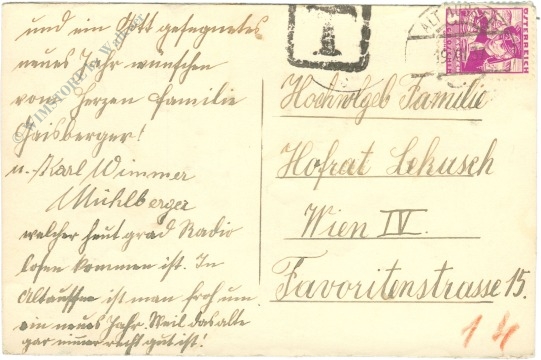 und ein Gott gesegnetes
neues Jahr wünschen
vom Herzen Familie
Haisberger!
u. Karl Wimmer
Mühlberger
welcher heut grad Radio
losen kommen ist. In
Altaussee ist man froh um
ein neues Jahr. Weil das alte
gar immer recht gut ist!
T
ÖSTERREICH
Hochwlgeb Familie
Hofrat Lekusch
Wien IV.
Favoritenstrasse 15.